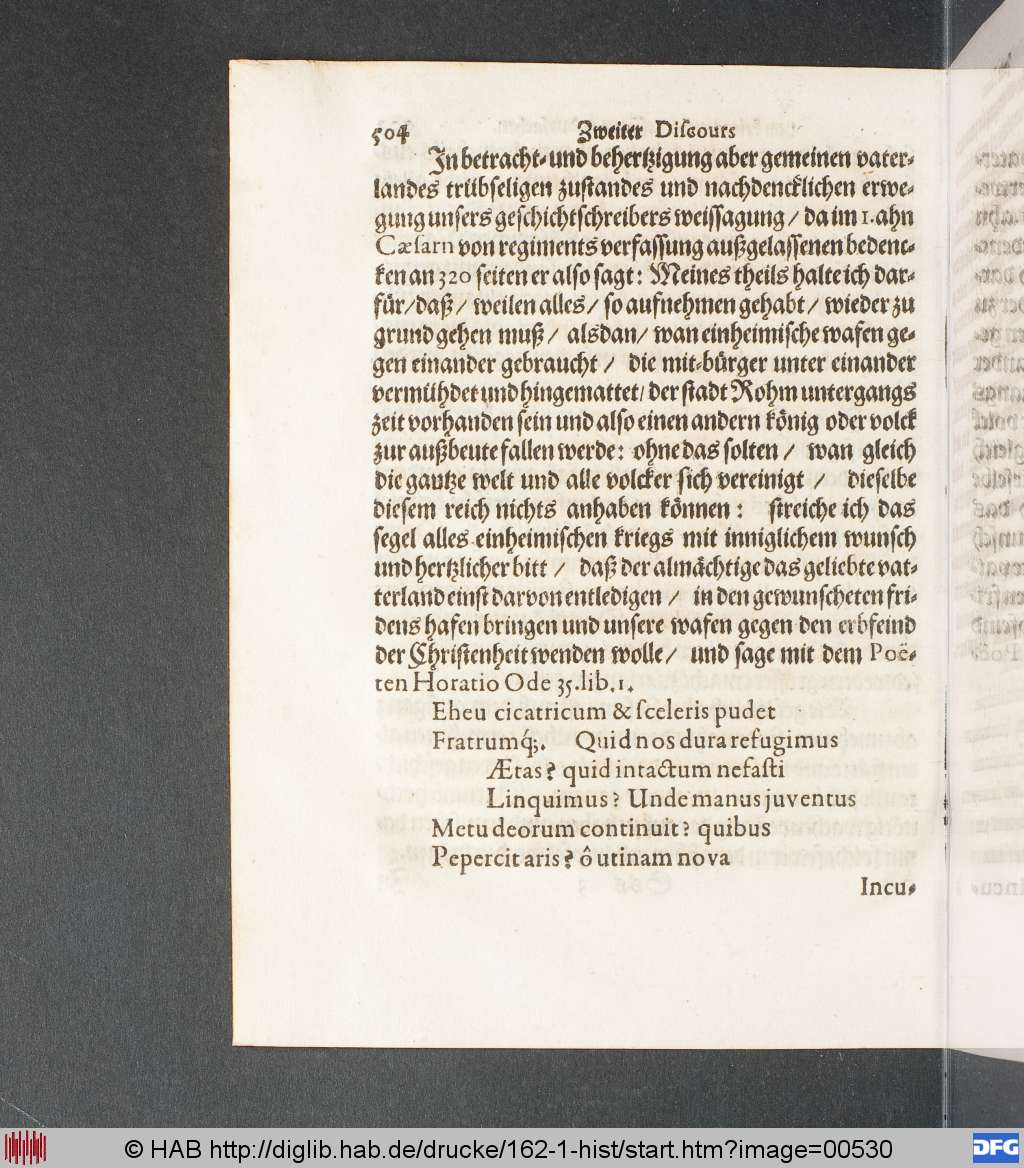 504 Zweiter Diſcours
In betracht⸗ und behertzigung aber gemeinen vater⸗
landes trübseligen zustandes und nachdencklichen erwe⸗
gung unsers geschichtschreibers weissagung / da im 1. ahn
Cæſarn von regiments verfassung außgelassenen bedenc⸗
ken an 320 seiten er also sagt: Meines theils halte ich dar⸗
für / daß / weilen alles / so aufnehmen gehabt / wieder zu
grund gehen muß / alsdan / wan einheimische wafen ge⸗
gen einander gebraucht / die mit⸗bürger unter einander
vermühdet und hingemattet / der stadt Rohm untergangs
zeit vorhanden sein und also einen andern könig oder volck
zur außbeute fallen werde: ohne das solten / wan gleich
die gautze welt und alle volcker sich vereinigt / dieselbe
diesem reich nichts anhaben können: streiche ich das
segel alles einheimischen kriegs mit inniglichem wunsch
und hertzlicher bitt / daß der almächtige das geliebte vat⸗
terland einst darvon entledigen / in den gewunscheten fri⸗
dens hafen bringen und unsere wafen gegen den erbfeind
der Christenheit wenden wolle / und sage mit dem Poë⸗
ten Horatio Ode 35. lib. 1.
Eheu cicatricum & ſceleris pudet
Fratrumq́;. Quid nos dura refugimus
Ætas? quid intactum nefaſti
Linquimus? Unde manus juventus
Metu deorum continuit? quibus
Pepercit aris? ô utinam nova
Incu⸗
© HAB http://diglib.hab.de/drucke/162-1-hist/start.htm?image=00530
DFG